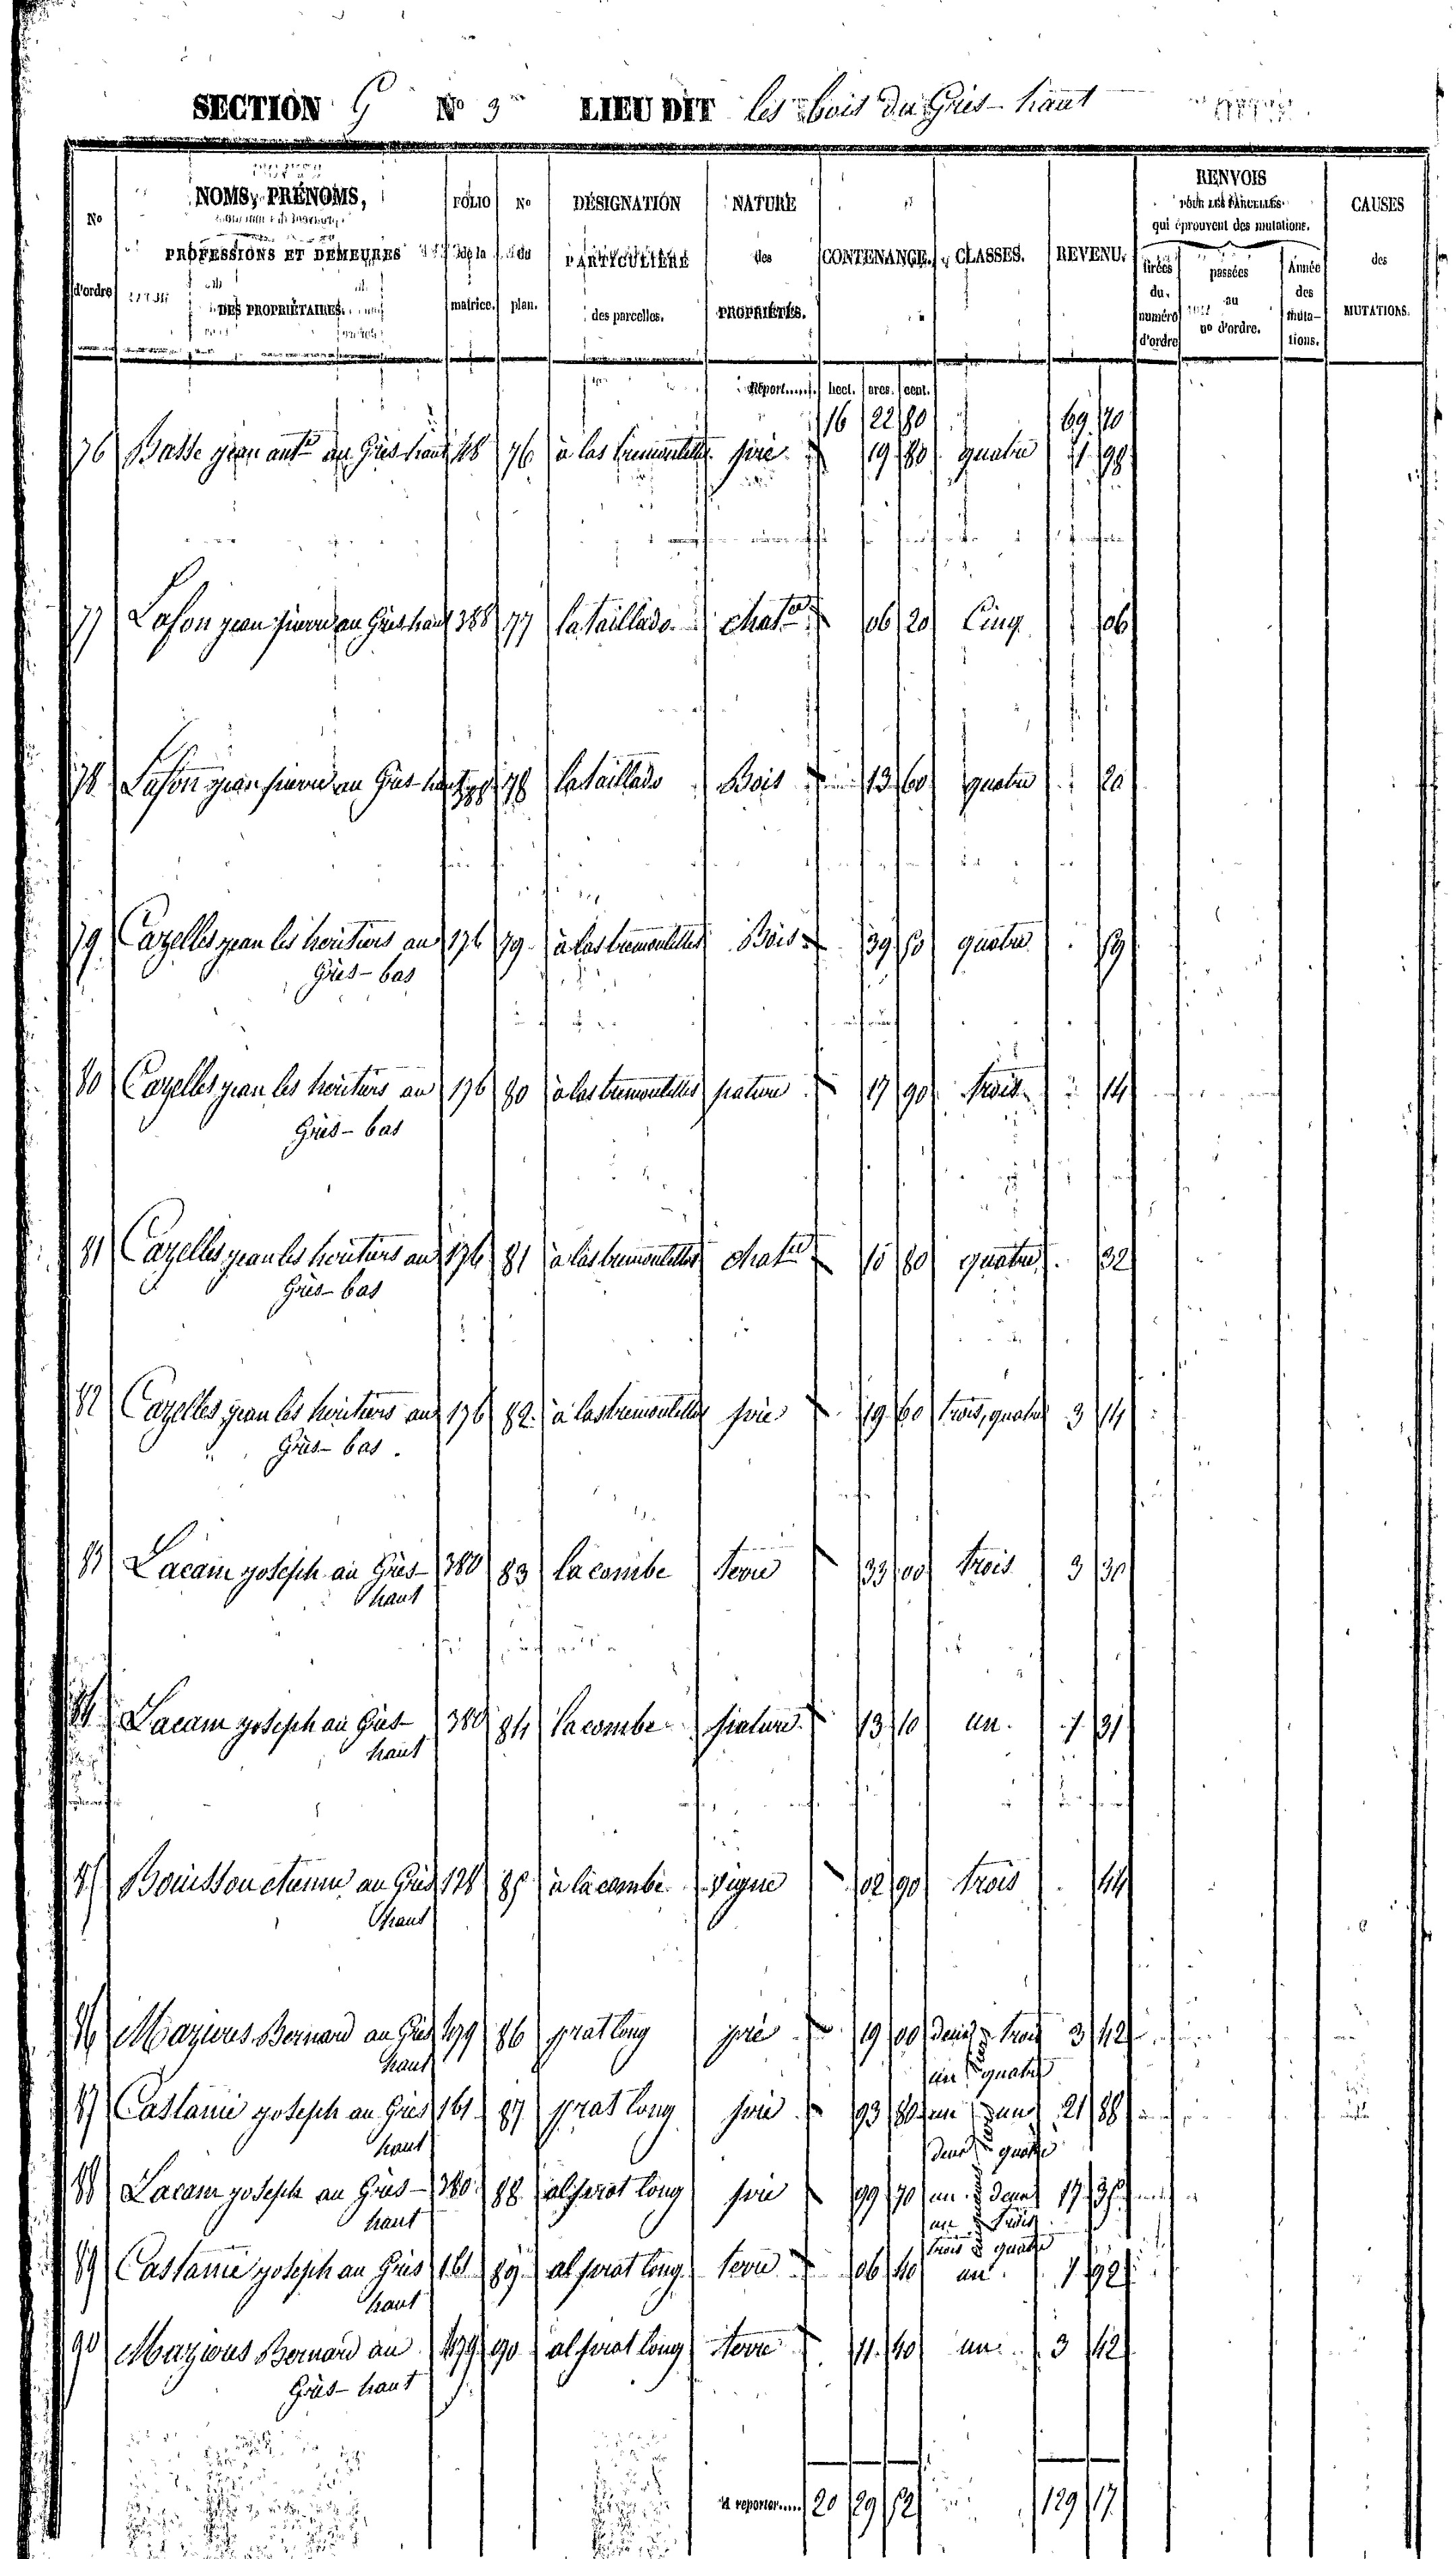 SECTION G No 3 LIEU DIT les bois du Grès-haut
No d'ordre
NOMS, PRÉNOMS, PROFESSIONS ET DEMEURES DES PROPRIÉTAIRES.
FOLIO de la matrice.
No du plan.
DÉSIGNATION PARTICULIÈRE des parcelles.
NATURE des PROPRIÉTÉS.
CONTENANCE.
CLASSES.
REVENU.
RENVOIS POUR LES PARCELLES qui éprouvent des mutations.
tirées du numéro d'ordre
passées au no d'ordre.
Année des mutations.
CAUSES des MUTATIONS.
Report...... hect. ares. cent.
16 22 80 69 70
76 Basse jean antne au Grès-haut 76 à las tremoulettes pré 19 80 quatre 1 98
77 Lafon jean pierre au Grès-haut 388 77 la taillade chater 06 20 Cinq 06
78 Lafon jean pierre au Grès-haut 388 78 la taillade Bois 13 60 quatre 20
79 Cazelles jean les héritiers au 176 79 à las tremoulettes Bois 39 50 quatre 59
Grès-bas
80 Cazelles jean les héritiers au 176 80 à las tremoulettes pature 17 90 trois 14
Grès-bas
81 Cazelles jean les héritiers au 176 81 à las tremoulettes chater 15 80 quatre 32
Grès-bas
82 Cazelles jean les héritiers au 176 82 à las tremoulettes pré 19 60 trois, quatre 3 14
Grès-bas
83 Lacam joseph au Grès- 380 83 la combe terre 33 00 trois 3 30
haut
84 Lacam joseph au Grès- 380 84 la combe pature 13 10 un 1 31
haut
85 Bouisson etienne au Grès 128 85 à la combe vigne 02 90 trois 44
haut
86 Mazieres Bernard au Grès 479 86 prat long pré 19 00 deux trois 3 42
haut
un quatre
87 Castanié joseph au Grès 161 87 prat long pré 93 80 un deux 21 88
haut
deux quatre
88 Lacam joseph au Grès- 380 88 al prat long pré 99 70 un deux 17
haut
un trois
trois quatre
89 Castanié joseph au Grès 161 89 al prat long terre 06 40 un 1 92
haut
90 Mazieres Bernard au 479 90 al prat long terre 11 40 un 3 42
Grès-haut
A reporter..... 20 29 129 17